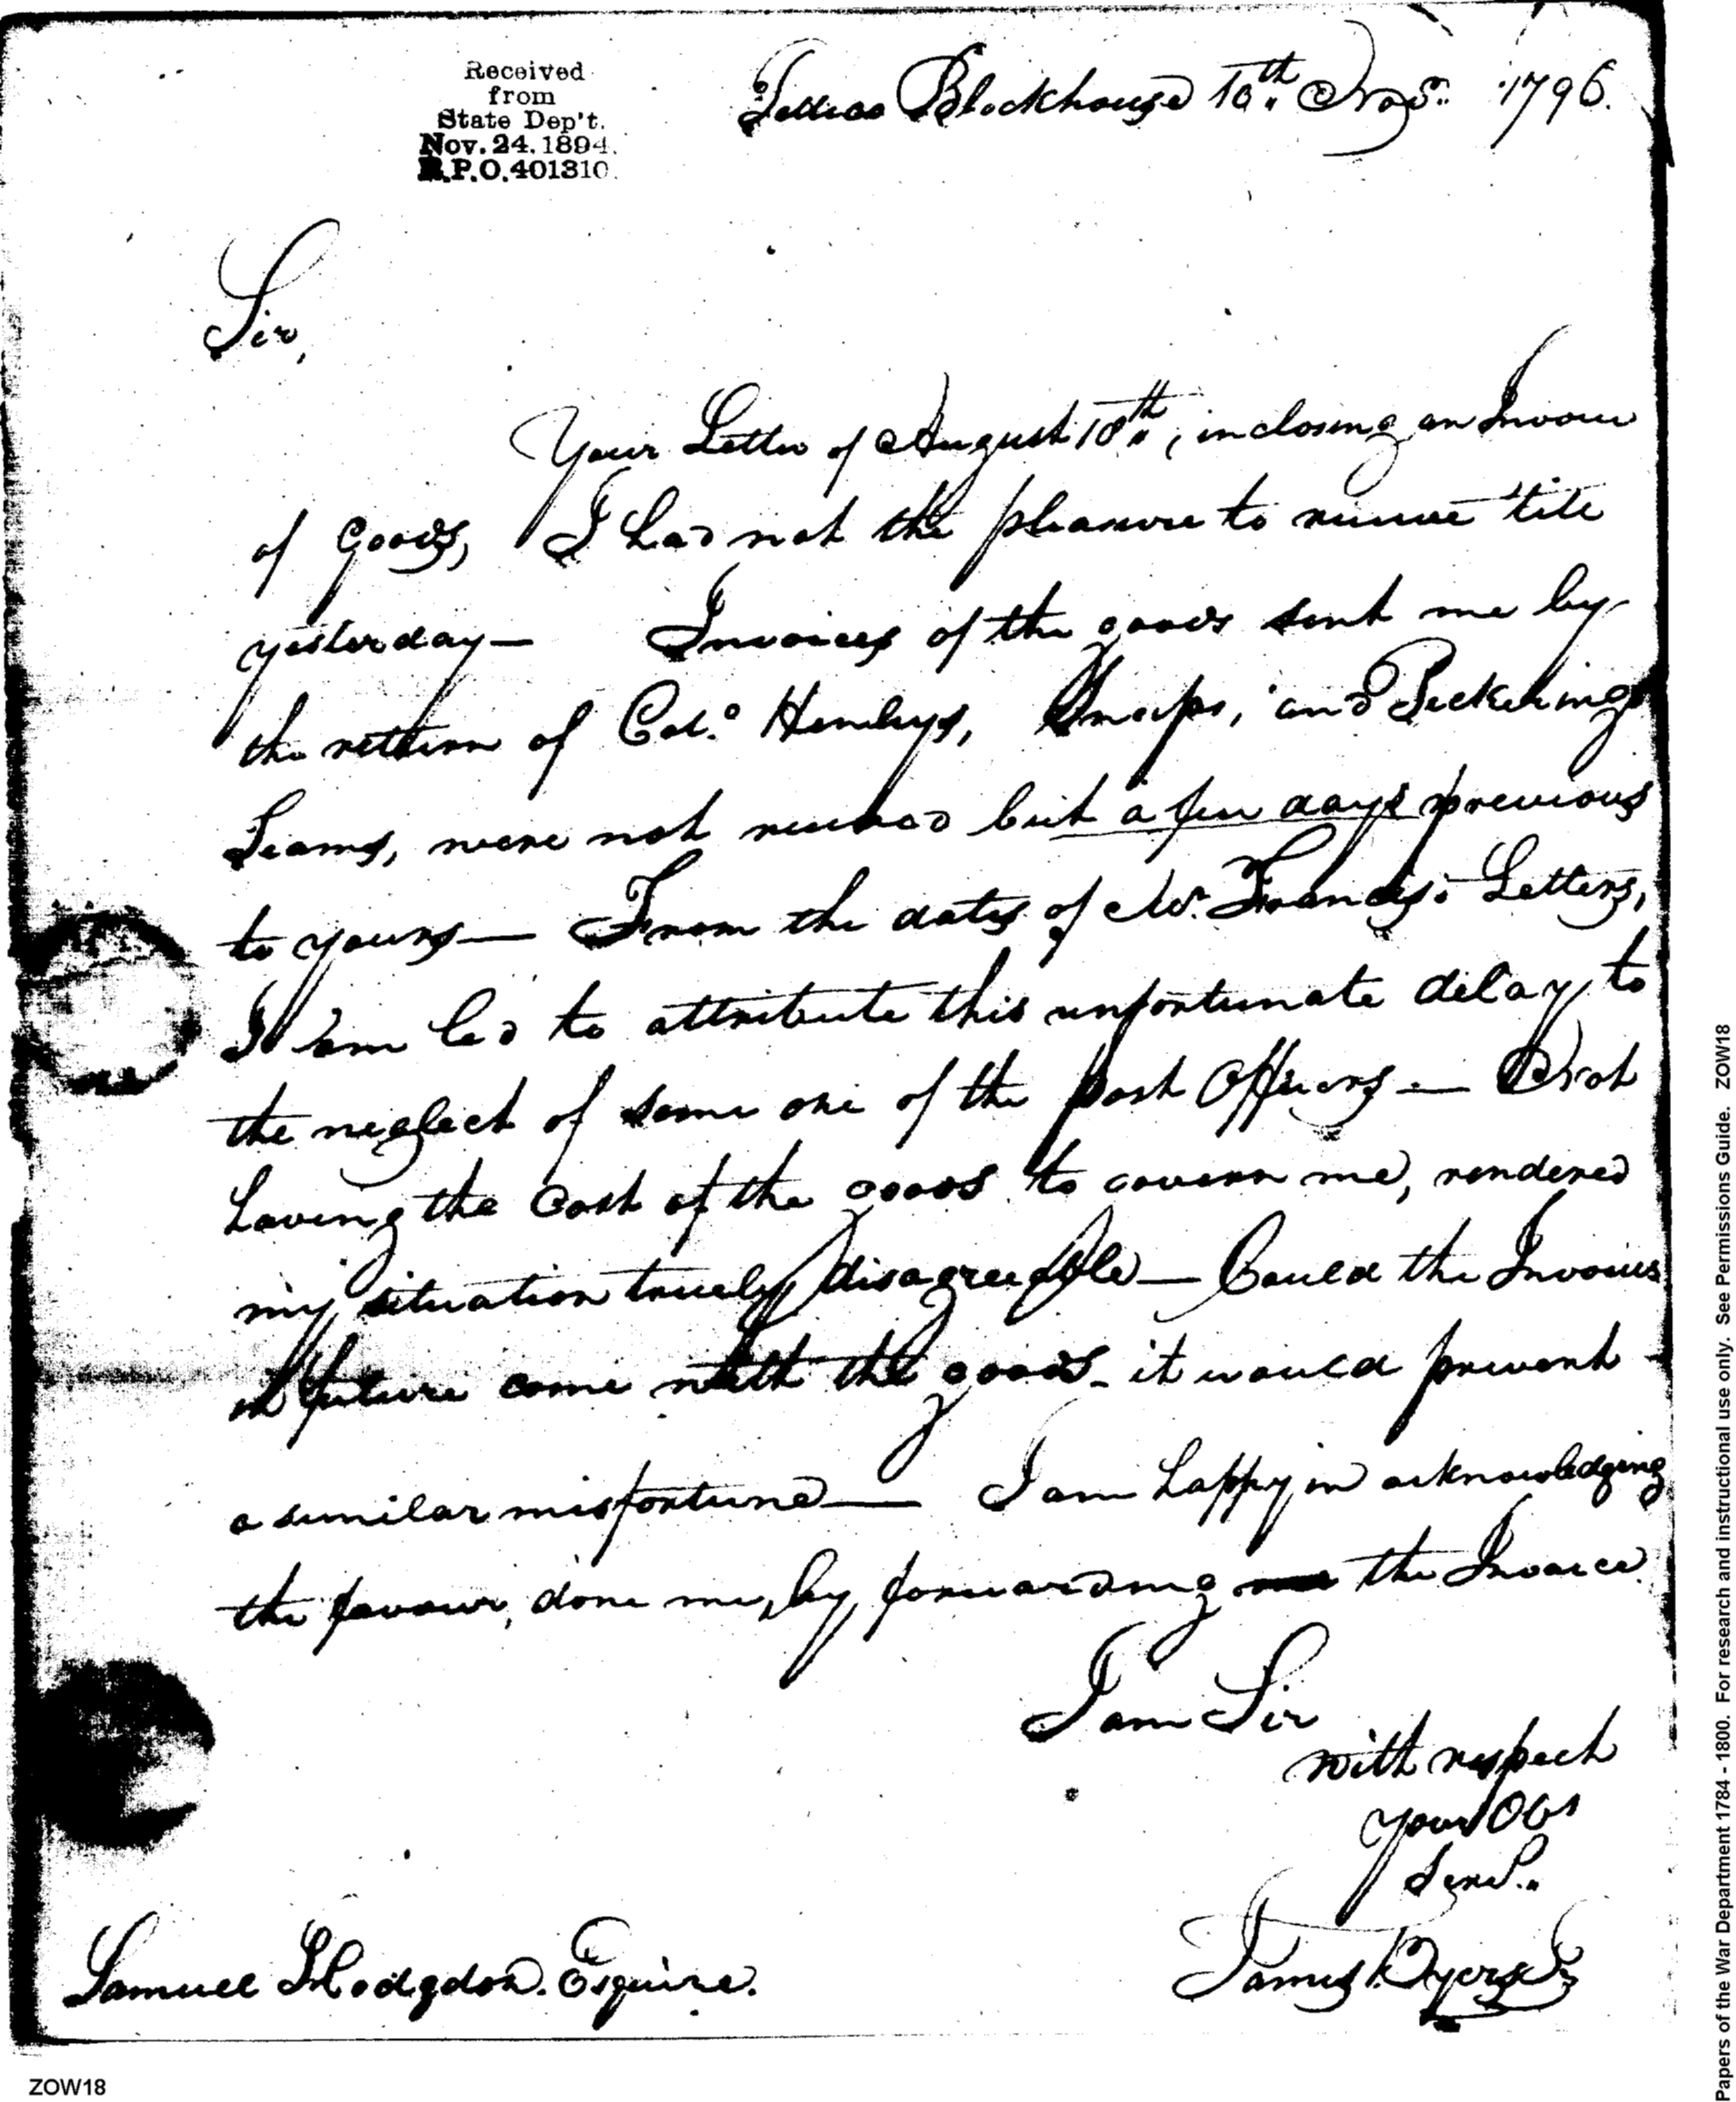 Received
from
State Dep't.
Nov. 24. 1894.
R.P.O. 401310.
Tellico Blockhouse 10th Novr. 1796.
Sir,
Your Letter of August 18th, inclosing an Invoice
of Goods, I had not the pleasure to receive till
yesterday — Invoices of the goods sent me by
the return of Colo. Henleys, Knaps, and Pickerings
Teams, were not received but a few days previous
to yours — From the dates of Mr. Francis's Letters,
I am led to attribute this unfortunate delay to
the neglect of some one of the post Officers — Not
having the Cost of the goods to govern me, rendered
my situation truely disagreeable — Could the Invoices
in future come with the goods - it would prevent
a similar misfortune — I am happy in acknowledging
the favour, done me, by forwarding the Invoice
I am Sir
with respect
your Obt
Servt.
James Byers
Samuel Hodgdon. Esquire.
ZOW18
Papers of the War Department 1784 - 1800. For research and instructional use only. See Permissions Guide. ZOW18